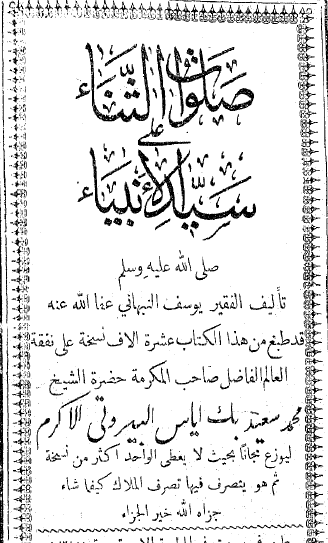 صلوات الثناء
على
سيد الأنبياء
صلى الله عليه وسلم
تأليف الفقير يوسف النبهاني عفا الله عنه
قد طبع من هذا الكتاب عشرة الاف نسخة على نفقة
العالم الفاضل صاحب المكرمة حضرة الشيخ
محمد سعيد بك اياس البيروتي الاكرم
ليوزع مجانا بحيث لا يعطى الواحد اكثر من نسخة
ثم هو يتصرف فيها تصرف الملاك كيفما شاء
جزاه الله خير الجزاء